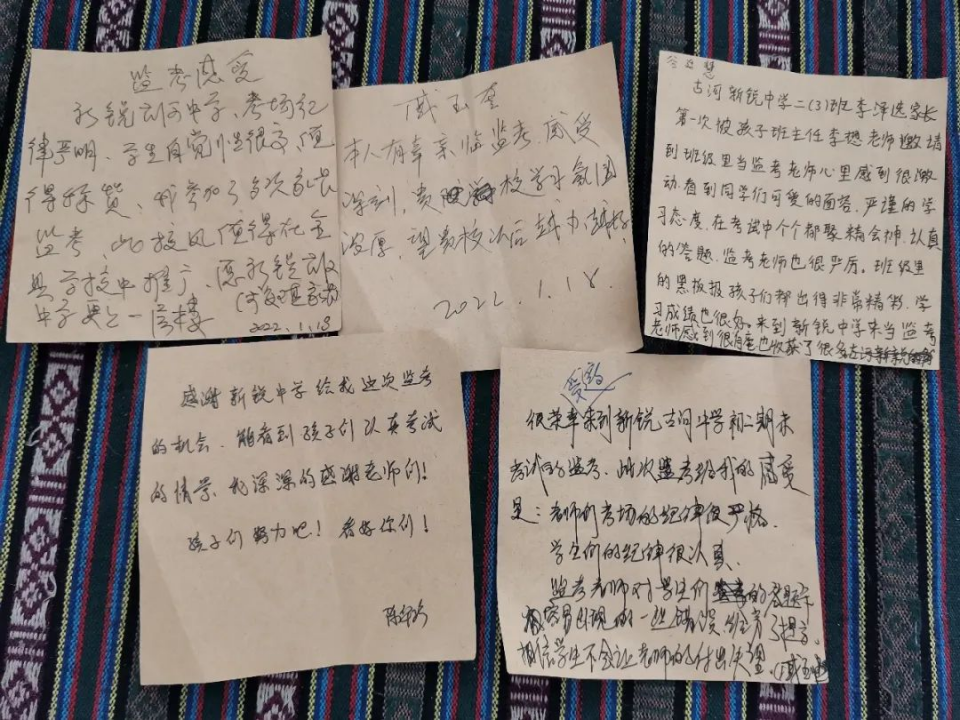 监考感受
新锐古河中学、考场纪
律严明、学生自觉性很高，值
得称赞，我参加了多次家长
监考，此校风值得在全
县学校中推广、愿新锐古河
中学更上一层楼
2022.1.18
戚玉奎
本人有幸亲临监考，感受
深刻，贵校学习氛围
浓厚，望贵校以后越办越好，
2022.1.18.
古河新锐中学二(3)班李泽选家长
第一次被孩子班主任李想老师邀请
到班级里当监考老师心里感到很激
动.看到同学们可爱的面容.严谨的学
习态度.在考试中个个都聚精会神.认真
的答题.监考老师也很严厉.班级里
的黑板报孩子们都出得非常精彩.学
习成绩也很好.来到新锐中学来当监考
老师感到很自豪也收获了很多
感谢新锐中学给我这次监考
的机会.能看到孩子们认真考试
的情景.我深深的感谢老师们!
孩子们努力吧!看好你们!
很荣幸来到新锐古河中学初二期末
考试的监考.此次监考给我的感受
是:老师们考场的纪律很严格.
学生们的纪律很认真.
监考老师对学生们的答题卡
容易出现的一些错误.给予了提示.
相信学生不会让老师的付出失望.